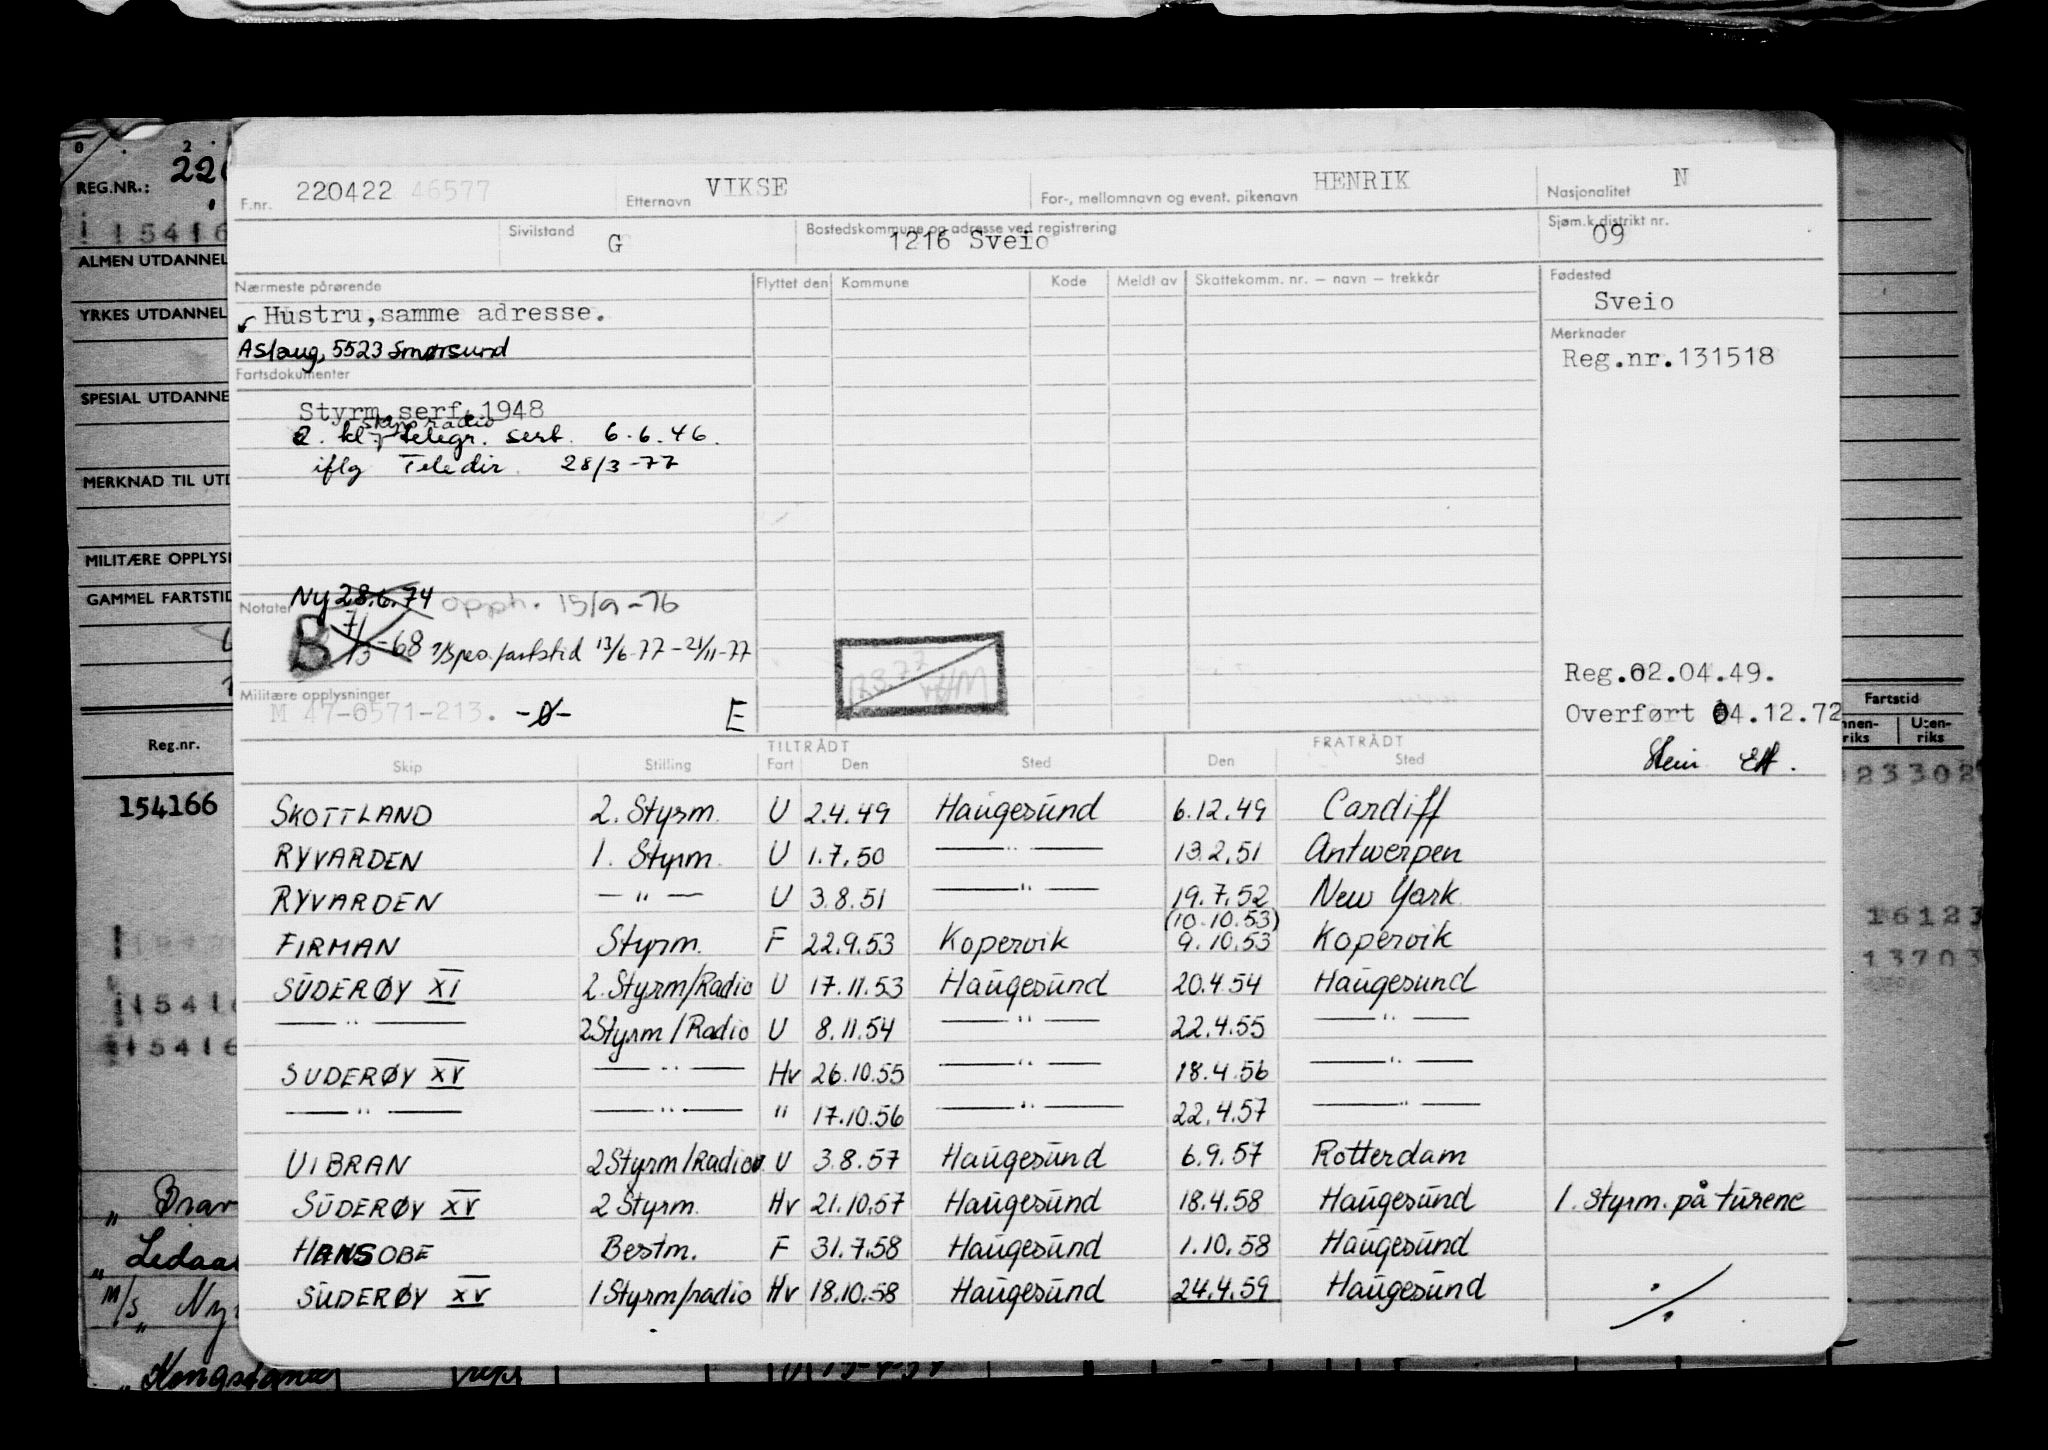 F.nr. 220422 46577 Etternavn VIKSE For-, mellomnavn og event. pikenavn HENRIK Nasjonalitet N
Sivilstand G Bostedskommune og adresse ved registrering 1216 Sveio Sjøm.k.distrikt nr. 09
Nærmeste pårørende Flyttet den Kommune Kode Meldt av Skattekomm. nr. – navn – trekkår Fødested
Hustru, samme adresse. Sveio
Aslaug, 5523 Smørsund Merknader
Fartsdokumenter Reg.nr.131518
Styrm.serf.1948
skipsradio
2. kl. telegr. sert. 6.6.46.
iflg Teledir. 28/3-77
Notater Ny 28.6.74 opph. 15/9-76
B 7/3-68 fartstid 13/6-77-21/11-77
Reg.02.04.49.
Militære opplysninger
M 47-0571-213. -0- E
Overført 04.12.72
TILTRÅDT FRATRÅDT
Skip Stilling Fart Den Sted Den Sted
SKOTTLAND 2. Styrm. U 2.4.49 Haugesund 6.12.49 Cardiff
RYVARDEN 1. Styrm. U 1.7.50 —"— 13.2.51 Antwerpen
RYVARDEN —"— U 3.8.51 —"— 19.7.52 New York
(10.10.53)
FIRMAN Styrm. F 22.9.53 Kopervik 9.10.53 Kopervik
SÜDERØY XI 2. Styrm/Radio U 17.11.53 Haugesund 20.4.54 Haugesund
—"— 2 Styrm/Radio U 8.11.54 —"— 22.4.55 —"—
SUDERØY XV —"— Hv 26.10.55 —"— 18.4.56 —"—
—"— —"— " 17.10.56 —"— 22.4.57 —"—
VIBRAN 2 Styrm/Radio U 3.8.57 Haugesund 6.9.57 Rotterdam
SÜDERØY XV 2 Styrm. Hv 21.10.57 Haugesund 18.4.58 Haugesund 1. Styrm. på turene
HANSOBE Bestm. F 31.7.58 Haugesund 1.10.58 Haugesund
SÜDERØY XV 1 Styrm/radio Hv 18.10.58 Haugesund 24.4.59 Haugesund ./.
REG.NR.: 220
15416
ALMEN UTDANNEL
YRKES UTDANNEL
SPESIAL UTDANNE
MERKNAD TIL UTD
MILITÆRE OPPLYS
GAMMEL FARTSTID
Reg.nr.
154166
15416
15416
" Brav
" Ledaa
M/s Ny
" Kongs
Fartstid
nnen-riks Uten-riks
23302
16123
13703